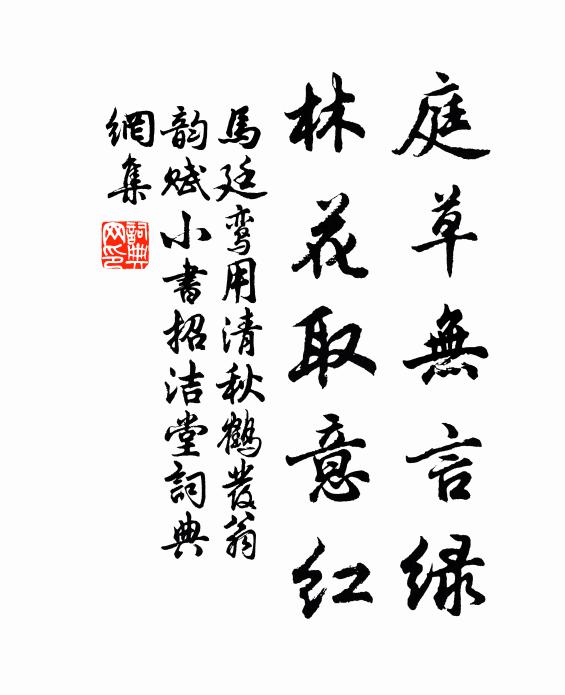 庭草無言緑
林花取意紅
馬廷鸾用清秋鶴發翁
韵赋小書招洁堂詞典
網集
詞典
网印